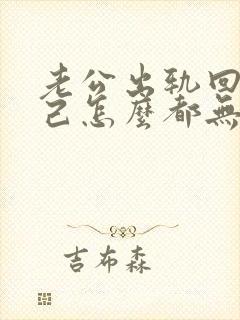 老公出轨回
己怎麼都無
吉布森